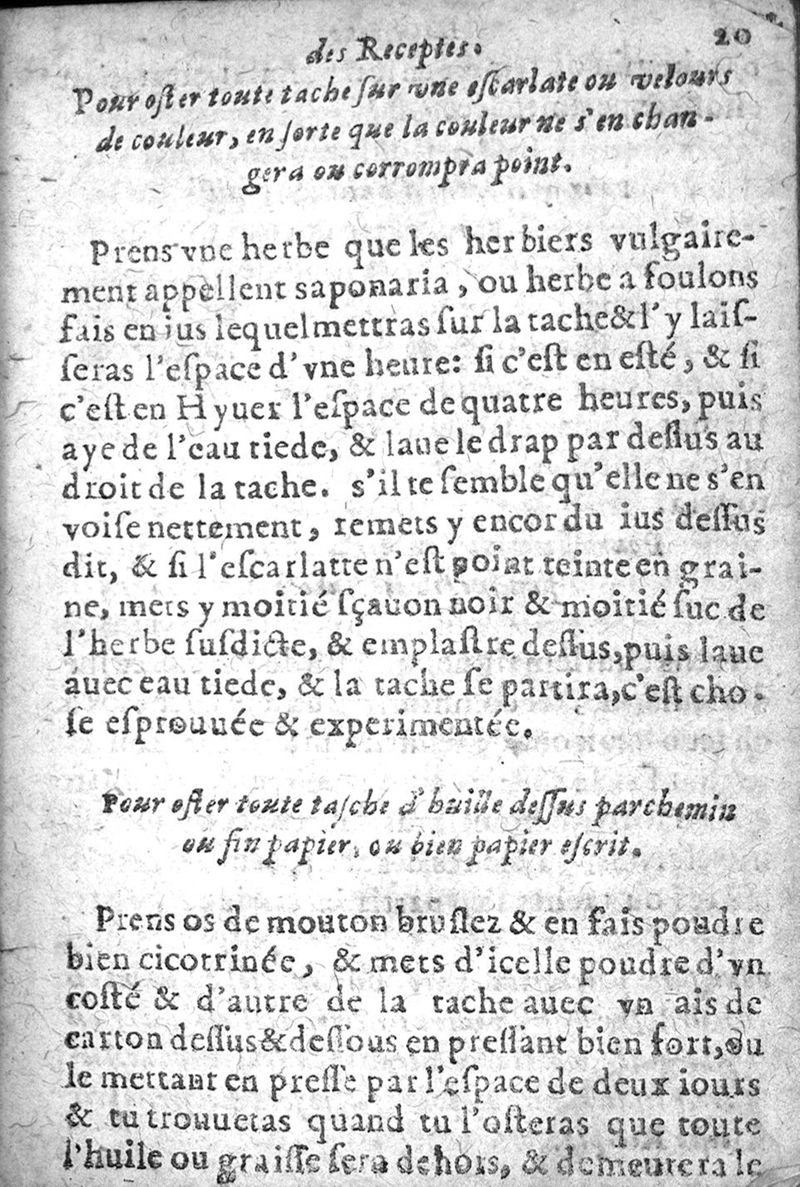 des Receptes. 20
Pour oſter toute tache ſur vne eſcarlate ou velours
de couleur, en ſorte que la couleur ne s'en chan-
gera ou corrompra point.
Prens vne herbe que les herbiers vulgaire-
ment appellent saponaria, ou herbe a foulons
fais en ius lequel mettras ſur la tache & l'y laiſ-
ſeras l'eſpace d'vne heure: ſi c'eſt en eſté, & ſi
c'eſt en Hyuer l'eſpace de quatre heures, puis
aye de l'eau tiede, & laue le drap par deſſus au
droit de la tache. s'il te ſemble qu'elle ne s'en
voiſe nettement, remets y encor du ius deſſus
dit, & ſi l'eſcarlatte n'eſt point teinte en grai-
ne, mets y moitié ſçauon noir & moitié ſuc de
l'herbe ſuſdicte, & emplaſtre deſſus, puis laue
auec eau tiede, & la tache ſe partira, c'eſt cho-
ſe eſprouuée & experimentée.
Pour oſter toute taſche d'huille deſſus parchemin
ou fin papier, ou bien papier eſcrit.
Prens os de mouton bruſlez & en fais poudre
bien cicotrinée, & mets d'icelle poudre d'vn
coſté & d'autre de la tache auec vn ais de
carton deſſus & deſſous en preſſant bien fort, ou
le mettant en preſſe par l'eſpace de deux iours
& tu trouueras quand tu l'oſteras que toute
l'huile ou graiſſe ſera dehors, & demeurera le